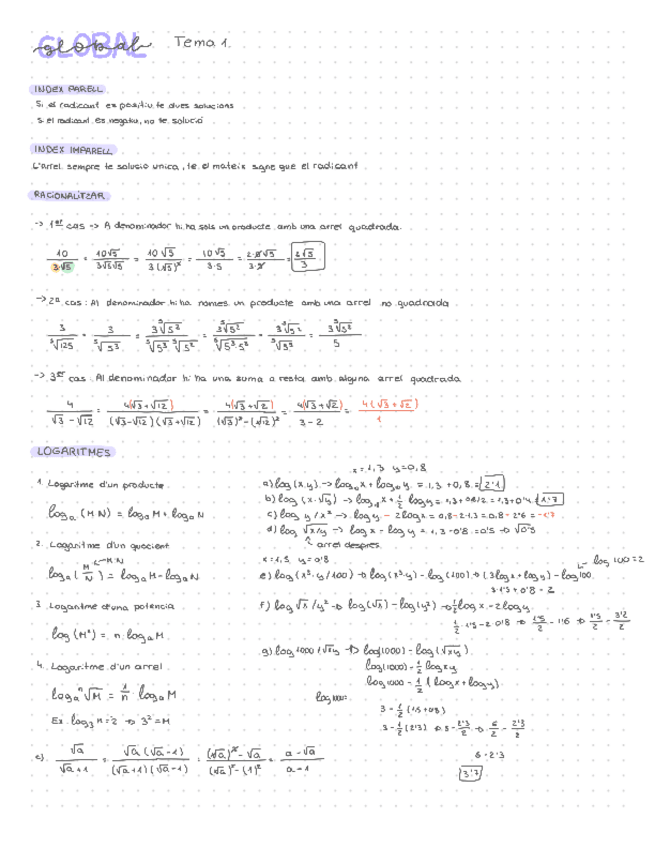 global Tema 1.
INDEX PARELL
Si el radicant es positiu te dues solucions
si el radicant es negatiu, no te solució
INDEX IMPARELL
L'arrel sempre te solusio unica, te el mateix signe que el radicant
RACIONALITZAR
-> 1er cas -> A denominador hi ha sols un producte amb una arrel quadrada.
10/3·√5 = 10√5/3√5√5 = 10√5/3(√5)² = 10√5/3·5 = 2·5√5/3·5 = 2√5/3
-> 2a cas: Al denominador hi ha nomes un producte amb una arrel no quadrada.
3/⁵√125 = 3/⁵√5³ = 3⁵√5²/⁵√5³·⁵√5² = 3⁵√5²/⁵√5³·5² = 3⁵√5²/⁵√5⁵ = 3⁵√5²/5
-> 3er cas. Al denominador hi ha una suma o resta amb alguna arrel quadrada
4/√3-√12 = 4(√3+√12)/(√3-√12)(√3+√12) = 4(√3+√2)/(√3)²-(√12)² = 4(√3+√2)/3-2 = 4(√3+√2)/1
LOGARITMES
x=1,3 y=0,8
1. Logaritme d'un producte.
logₐ(M·N) = logₐM + logₐN
2. Logaritme d'un quocient
logₐ(M/N) = logₐM - logₐN
3. Logaritme d'una potencia
log(Mⁿ) = n·logₐM
4. Logaritme d'un arrel.
logₐ ⁿ√M = 1/n · logₐM
Ex. log₃ M=2 -> 3²=M
a) log(x·y) -> log₁₀x + log₁₀y = 1,3+0,8 = 2'1
b) log(x·√y) -> logx + 1/2 logy = 1,3+0,8/2 = 1,3+0'4 1'7
c) log y/x² -> logy - 2logx = 0,8-2·1,3 = 0,8-2'6 = -1'7
d) log √x/y -> logx - logy = 1,3-0'8 = 0'5 -> √0'5
arrel despres.
x=1,5 y=0'8
log 100=2
e) log(x³·y/100) -> log(x³·y) - log(100) -> (3logx + logy) - log100.
3·1'5+0'8-2
f) log√x/y² -> log(√x) - log(y²) -> 1/2 logx - 2logy
1/2·1'5-2·0'8 -> 1'5/2 - 1'6 -> 1'5/2 - 3'2/2
g) log 1000/√xy -> log(1000) - log(√xy).
log(1000) - 1/2 logxy
log1000 - 1/2 (logx + logy)
log1000=
3 - 1/2 (1,5+0,8)
3 - 1/2 (2'3) -> 3 - 2'3/2 -> 6/2 - 2'3/2
6-2'3
3'7
c) √a/√a+1 = √a(√a-1)/(√a+1)(√a-1) = (√a)²-√a/(√a)²-(1)² = a-√a/a-1